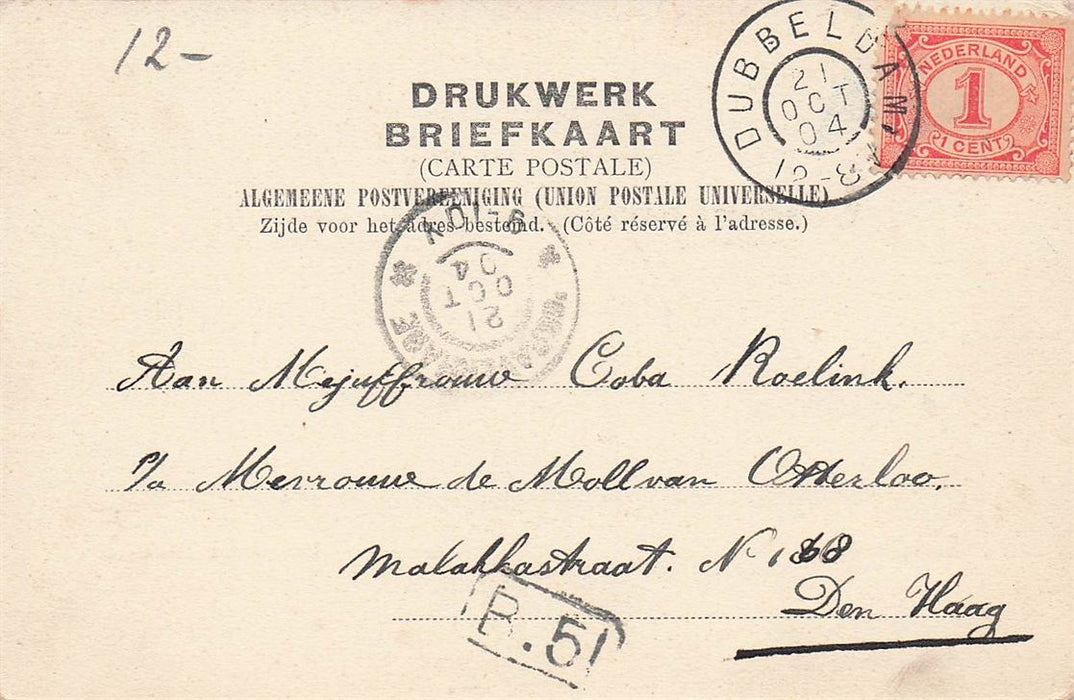 12-
DUBBELDAM
21
OCT
04
12-8
NEDERLAND
1
1 CENT
DRUKWERK
BRIEFKAART
(CARTE POSTALE)
ALGEMEENE POSTVEREENIGING (UNION POSTALE UNIVERSELLE)
Zijde voor het adres bestemd. (Côté réservé à l'adresse.)
21
OCT
04
Aan Mejuffrouw Coba Roelink.
p/a Mevrouw de Moll van Otterloo.
Malakkastraat. N 168
Den Haag
B.51